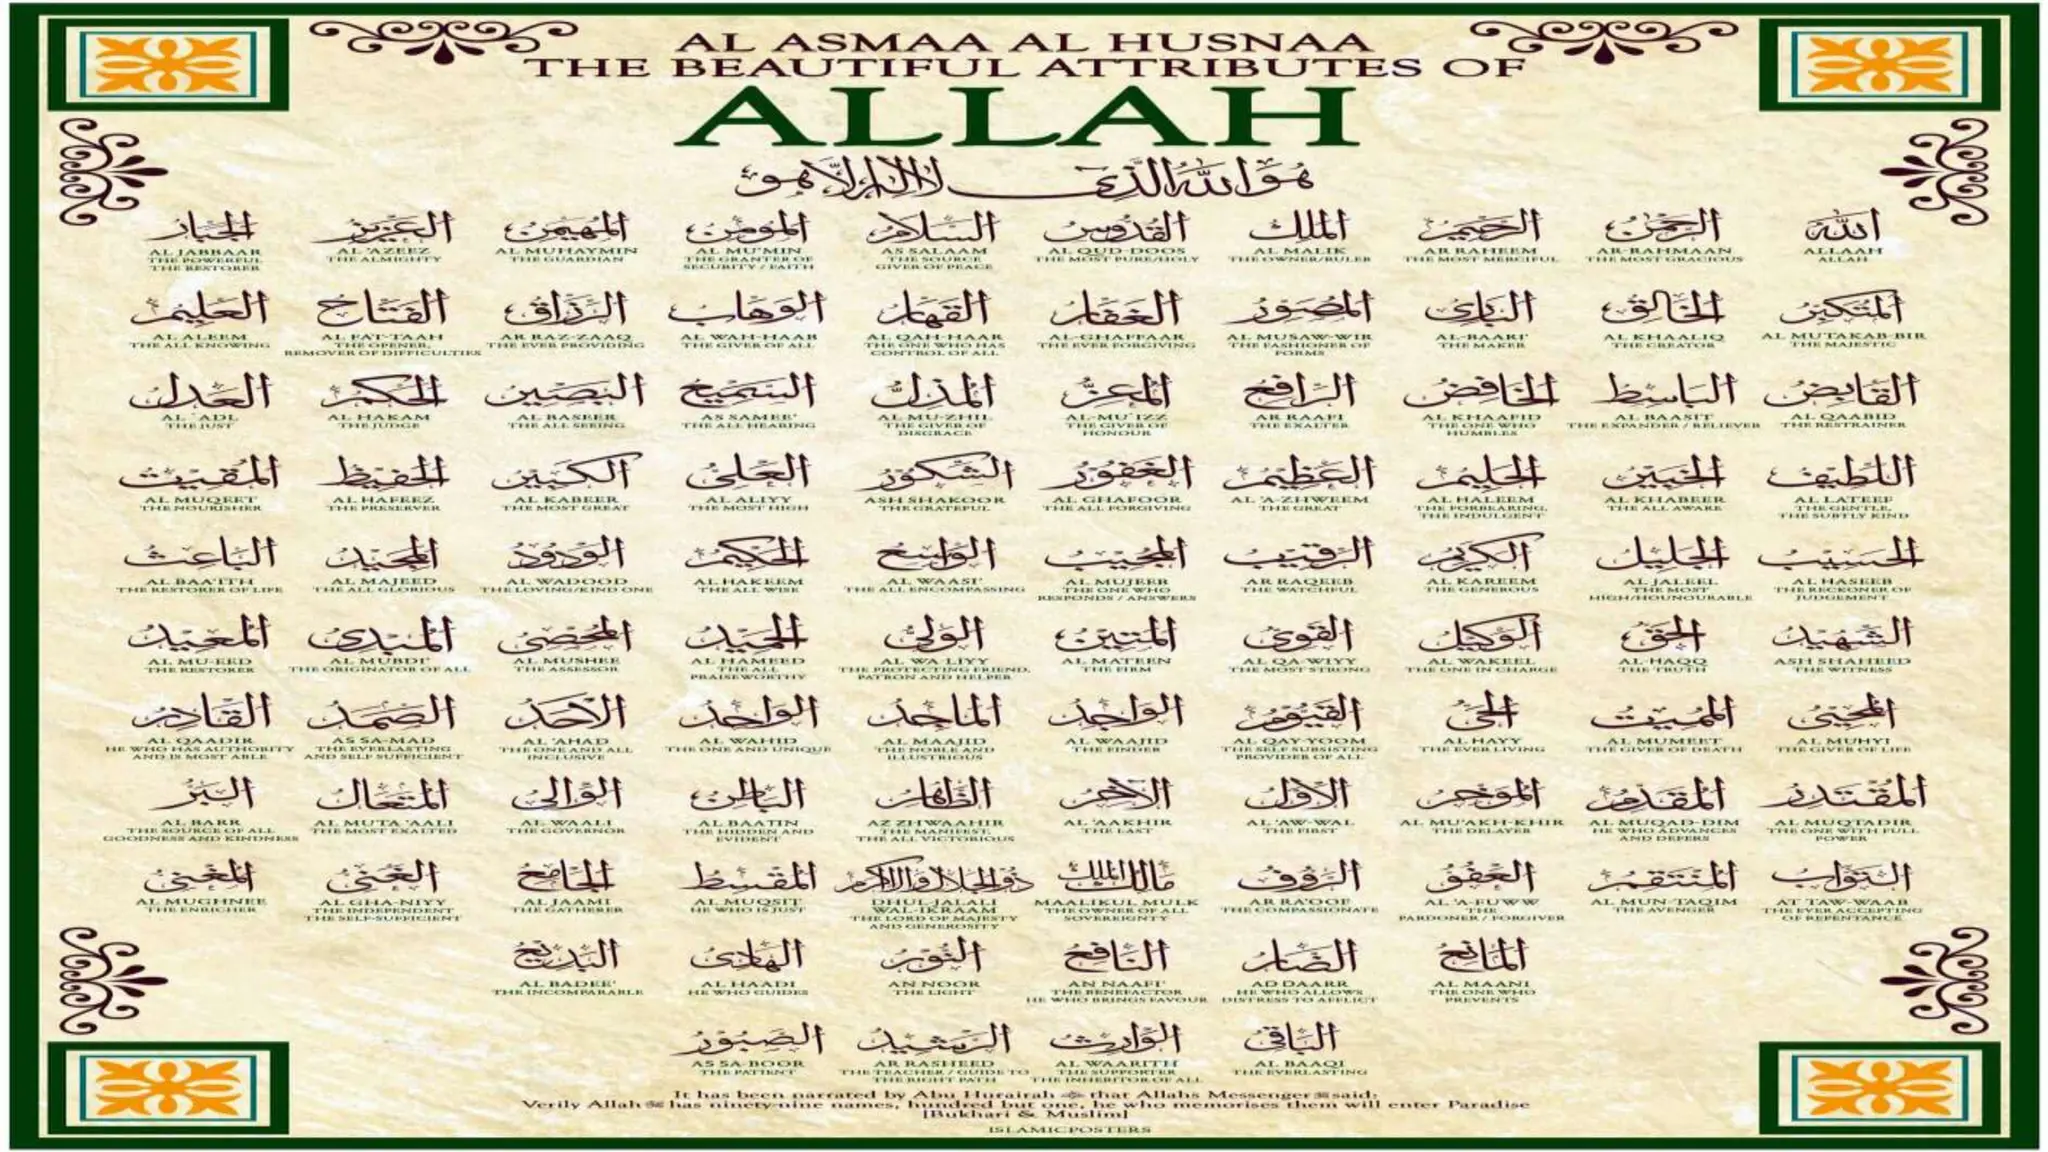 AL ASMAA AL HUSNAA
THE BEAUTIFUL ATTRIBUTES OF
ALLAH
هُوَ اللهُ الَّذِي لَا إِلٰهَ إِلَّا هُوَ
الله الرحمن الرحيم الملك القدوس السلام المؤمن المهيمن العزيز الجبار
ALLAAH AR-RAHMAAN AR RAHEEM AL MALIK AL QUD-DOOS AS SALAAM AL MU'MIN AL MUHAYMIN AL 'AZEEZ AL JABBAAR
ALLAH THE MOST GRACIOUS THE MOST MERCIFUL THE OWNER/RULER THE MOST PURE/HOLY THE SOURCE GIVER OF PEACE THE GRANTER OF SECURITY / FAITH THE GUARDIAN THE ALMIGHTY THE POWERFUL THE RESTORER
المتكبر الخالق البارئ المصور الغفار القهار الوهاب الرزاق الفتاح العليم
AL MUTAKAB-BIR AL KHAALIQ AL-BAARI' AL MUSAW-WIR AL-GHAFFAAR AL QAH-HAAR AL WAH-HAAB AR RAZ-ZAAQ AL FAT-TAAH AL ALEEM
THE MAJESTIC THE CREATOR THE MAKER THE FASHIONER OF FORMS THE EVER FORGIVING THE ONE WHO HAS CONTROL OF ALL THE GIVER OF ALL THE EVER PROVIDING THE OPENER, REMOVER OF DIFFICULTIES THE ALL KNOWING
القابض الباسط الخافض الرافع المعز المذل السميع البصير الحكم العدل
AL QAABID AL BAASIT AL KHAAFID AR RAAFI AL-MU'IZZ AL-MU-ZHIL AS SAMEE' AL BASEER AL HAKAM AL 'ADL
THE RESTRAINER THE EXPANDER / RELIEVER THE ONE WHO HUMBLES THE EXALTER THE GIVER OF HONOUR THE GIVER OF DISGRACE THE ALL HEARING THE ALL SEEING THE JUDGE THE JUST
اللطيف الخبير الحليم العظيم الغفور الشكور العلي الكبير الحفيظ المقيت
AL LATEEF AL KHABEER AL HALEEM AL 'A-ZHWEEM AL GHAFOOR ASH SHAKOOR AL ALIYY AL KABEER AL HAFEEZ AL MUQEET
THE GENTLE, THE SUBTLY KIND THE ALL AWARE THE FORBEARING, THE INDULGENT THE GREAT THE ALL FORGIVING THE GRATEFUL THE MOST HIGH THE MOST GREAT THE PRESERVER THE NOURISHER
الحسيب الجليل الكريم الرقيب المجيب الواسع الحكيم الودود المجيد الباعث
AL HASEEB AL JALEEL AL KAREEM AR RAQEEB AL MUJEEB AL WAASI' AL HAKEEM AL WADOOD AL MAJEED AL BAA'ITH
THE RECKONER OF JUDGEMENT THE MOST HIGH/HOUNOURABLE THE GENEROUS THE WATCHFUL THE ONE WHO RESPONDS / ANSWERS THE ALL ENCOMPASSING THE ALL WISE THE LOVING/KIND ONE THE ALL GLORIOUS THE RESTORER OF LIFE
الشهيد الحق الوكيل القوي المتين الولي الحميد المحصي المبدئ المعيد
ASH SHAHEED AL-HAQQ AL WAKEEL AL QA-WIYY AL MATEEN AL WA LIYY AL HAMEED AL MUSHEE AL MUBDI' AL MU-EED
THE WITNESS THE TRUTH THE ONE IN CHARGE THE MOST STRONG THE FIRM THE PROTECTING FRIEND, PATRON AND HELPER THE ALL PRAISEWORTHY THE ASSESSOR THE ORIGINATOR OF ALL THE RESTORER
المحيي المميت الحي القيوم الواجد الماجد الواحد الأحد الصمد القادر
AL MUHYI AL MUMEET AL HAYY AL QAY-YOOM AL WAAJID AL MAAJID AL WAHID AL 'AHAD AS SA-MAD AL QAADIR
THE GIVER OF LIFE THE GIVER OF DEATH THE EVER LIVING THE SELF SUBSISTING PROVIDER OF ALL THE FINDER THE NOBLE AND ILLUSTRIOUS THE ONE AND UNIQUE THE ONE AND ALL INCLUSIVE THE EVERLASTING AND SELF SUFFICIENT HE WHO HAS AUTHORITY AND IS MOST ABLE
المقتدر المقدم المؤخر الأول الآخر الظاهر الباطن الوالي المتعال البر
AL MUQTADIR AL MUQAD-DIM AL MU'AKH-KHIR AL 'AW-WAL AL 'AAKHIR AZ ZHWAAHIR AL BAATIN AL WAALI AL MUTA 'AALI AL BARR
THE ONE WITH FULL POWER HE WHO ADVANCES AND DEFERS THE DELAYER THE FIRST THE LAST THE MANIFEST, THE ALL VICTORIOUS THE HIDDEN AND EVIDENT THE GOVERNOR THE MOST EXALTED THE SOURCE OF ALL GOODNESS AND KINDNESS
التواب المنتقم العفو الرؤوف مالك الملك ذو الجلال والإكرام المقسط الجامع الغني المغني
AT TAW-WAAB AL MUN-TAQIM AL 'A-FUWW AR RA'OOF MAALIKUL MULK DHUL-JALALI WAL-IKRAAM AL MUQSIT AL JAAMI AL GHA-NIYY AL MUGHNEE
THE EVER ACCEPTING OF REPENTANCE THE AVENGER THE PARDONER / FORGIVER THE COMPASSIONATE THE OWNER OF ALL SOVEREIGNTY THE LORD OF MAJESTY AND GENEROSITY HE WHO IS JUST THE GATHERER THE INDEPENDENT THE SELF-SUFFICIENT THE ENRICHER
المانع الضار النافع النور الهادي البديع
AL MAANI AD DAARR AN NAAFI' AN NOOR AL HAADI AL BADEE'
THE ONE WHO PREVENTS HE WHO ALLOWS DISTRESS TO AFFLICT THE BENEFACTOR HE WHO BRINGS FAVOUR THE LIGHT HE WHO GUIDES THE INCOMPARABLE
الباقي الوارث الرشيد الصبور
AL BAAQI AL WAARITH AR RASHEED AS SA-BOOR
THE EVERLASTING THE SUPPORTER THE INHERITOR OF ALL THE TEACHER / GUIDE TO THE RIGHT PATH THE PATIENT
It has been narrated by Abu Hurairah that Allahs Messenger said:
Verily Allah has ninety-nine names, hundred but one, he who memorises them will enter Paradise
[Bukhari & Muslim]
ISLAMICPOSTERS